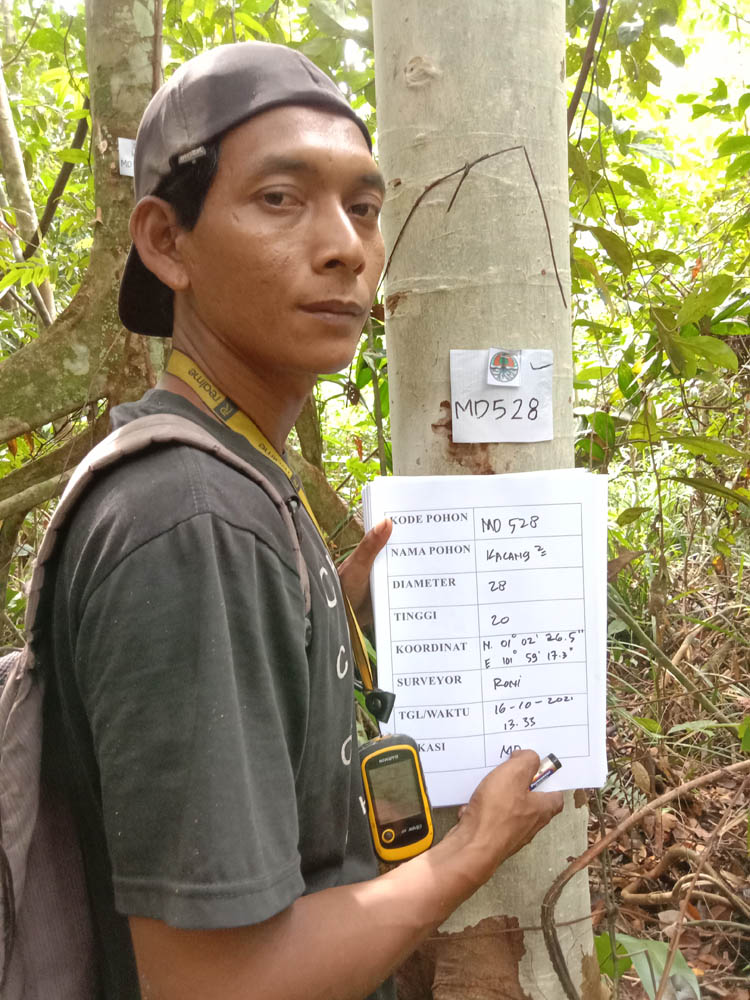 MD
MD528
realme
KODE POHON MD 528
NAMA POHON KACANG²
DIAMETER 28
TINGGI 20
KOORDINAT N. 01° 02' 26.5"
E 101° 59' 17.3"
SURVEYOR Romi
TGL/WAKTU 16-10-2021
13.33
KASI MD
GARMIN